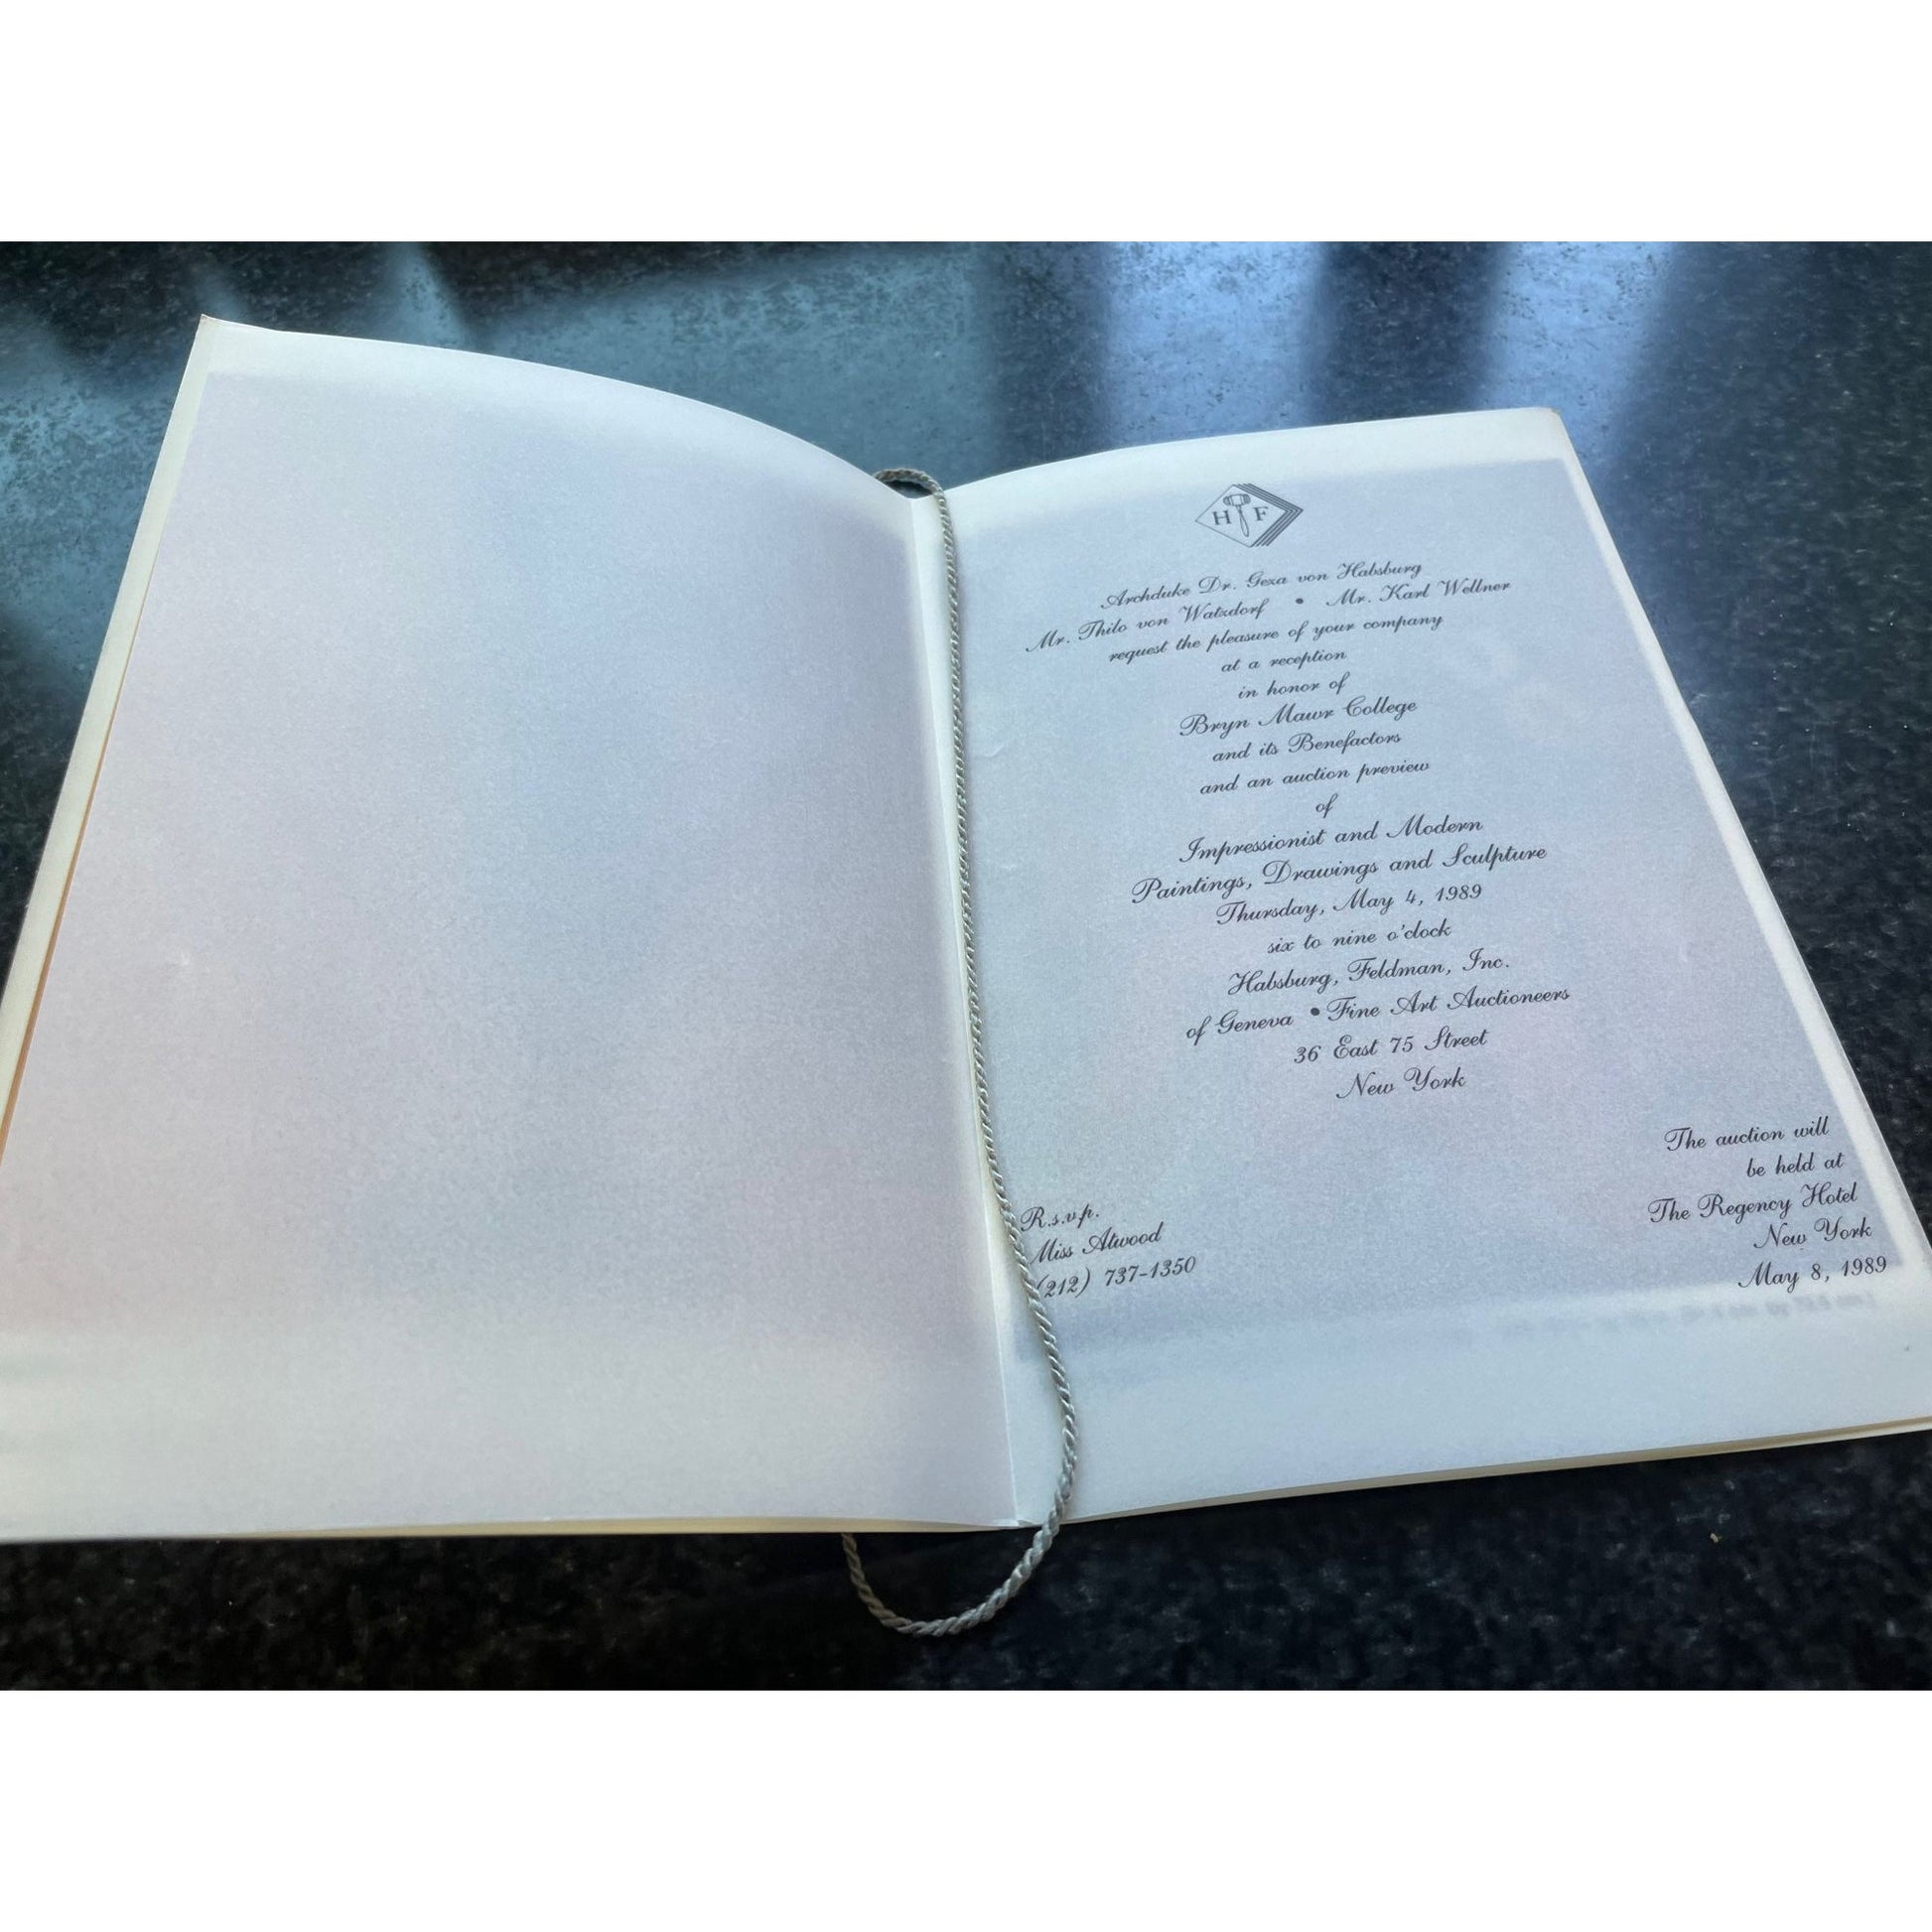 H F
Archduke Dr. Geza von Habsburg
Mr. Thilo von Watzdorf • Mr. Karl Wellner
request the pleasure of your company
at a reception
in honor of
Bryn Mawr College
and its Benefactors
and an auction preview
of
Impressionist and Modern
Paintings, Drawings and Sculpture
Thursday, May 4, 1989
six to nine o'clock
Habsburg, Feldman, Inc.
of Geneva • Fine Art Auctioneers
36 East 75 Street
New York
R.s.v.p.
Miss Atwood
(212) 737-1350
The auction will
be held at
The Regency Hotel
New York
May 8, 1989